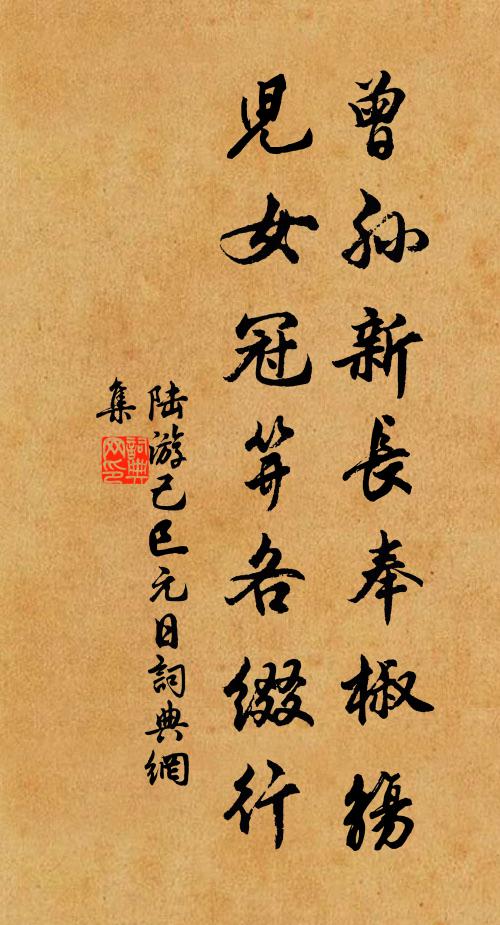 曾孫新長奉椒觴
兒女冠笄各綴行
陸游己巳元日詞典網
集
詞典
网印